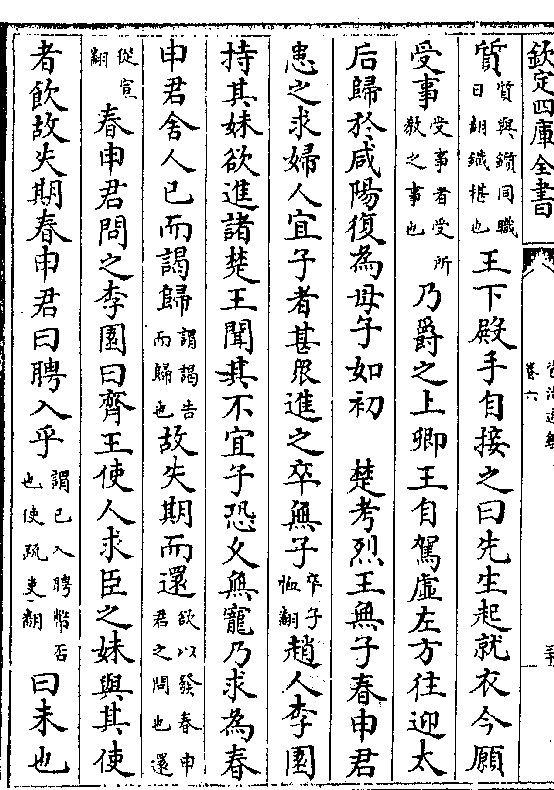 欽定四庫全書
卷六
質質與鑕同職日翻鑕椹也王下殿手自接之曰先生起就衣今願
受事受事者受所教之事也乃爵之上卿王自駕虛左方往迎太
后歸於咸陽復為母子如初　楚考烈王無子春申君
患之求婦人宜子者甚眾進之卒無子卒子恤翻趙人李園
持其妹欲進諸楚王聞其不宜子恐久無寵乃求為春
申君舍人已而謁歸謂謁告而歸也故失期而還欲以發春申君之問也還
從宣翻春申君問之李園曰齊王使人求臣之妹與其使
者飲故失期春申君曰聘入乎謂已入聘幣否也使疏吏翻曰未也